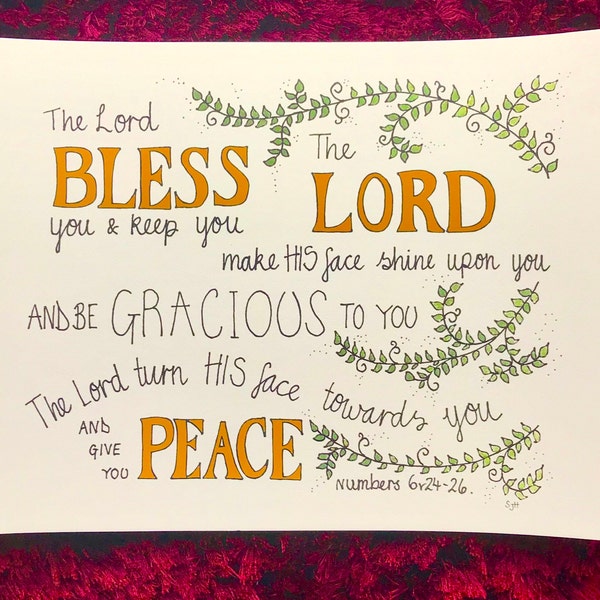 The Lord
BLESS
you & keep you
The
LORD
make HIS face shine upon you
AND BE GRACIOUS TO YOU
The Lord turn HIS face towards you
AND
GIVE
YOU PEACE
Numbers 6v24-26.
SJH